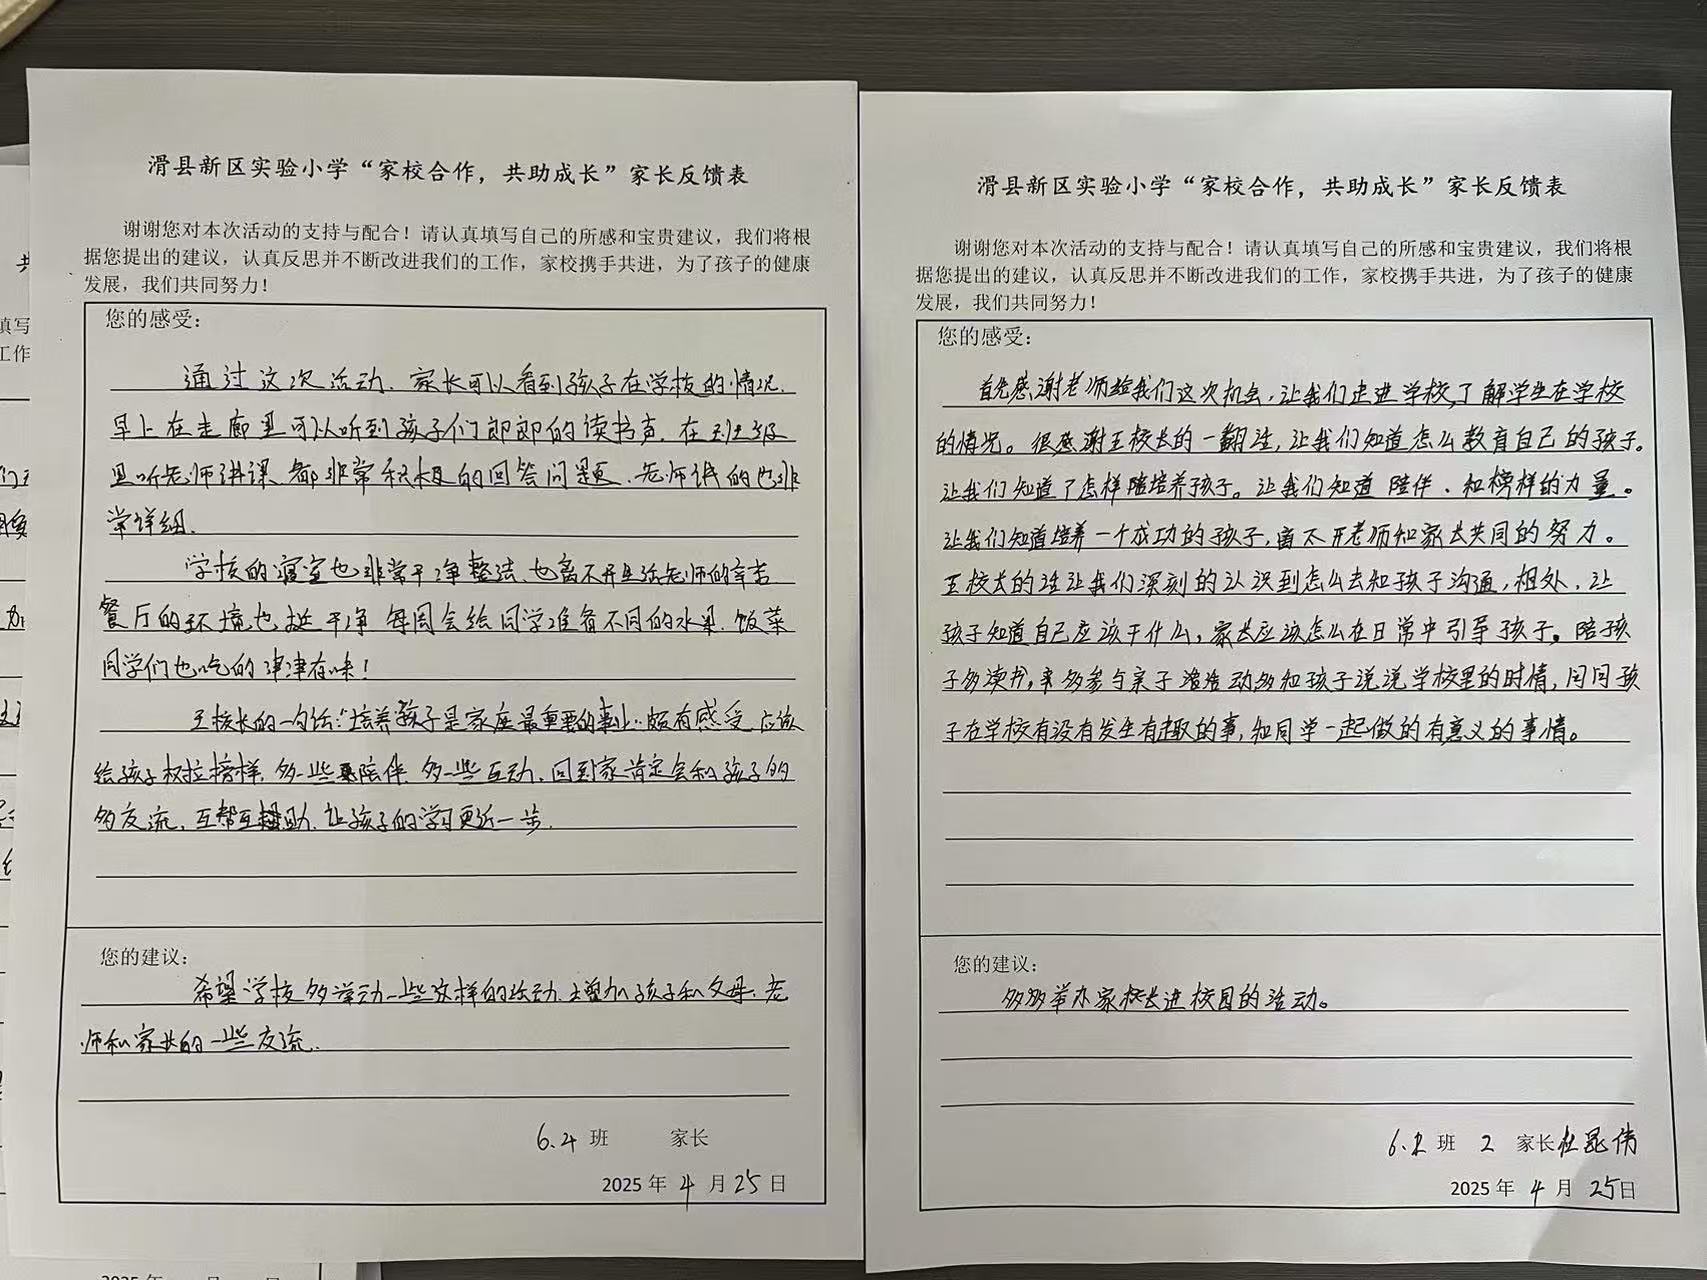 滑县新区实验小学“家校合作，共助成长”家长反馈表
谢谢您对本次活动的支持与配合！请认真填写自己的所感和宝贵建议，我们将根
据您提出的建议，认真反思并不断改进我们的工作，家校携手共进，为了孩子的健康
发展，我们共同努力！
您的感受：
通过这次活动、家长可以看到孩子在学校的情况.
早上在走廊里可以听到孩子们郎郎的读书声.在班级
里听老师讲课、都非常积极的回答问题、老师讲的也非
常详细.
学校的寝室也非常干净整洁.也离不开生活老师的辛苦
餐厅的环境也挺干净 每周会给同学准备不同的水果.饭菜
同学们也吃的津津有味！
王校长的一句话：“培养孩子是家庭最重要的事业”颇有感受 应该
给孩子 榜样.多一些陪伴.多一些互动.回到家肯定会和孩子的多
多交流.互帮互助.让孩子的学习更近一步.
您的建议：
希望学校多举动一些这样的活动.增加孩子和父母.老
师和家长的一些交流.
6.4 班 家长
2025 年 4 月 25 日
滑县新区实验小学“家校合作，共助成长”家长反馈表
谢谢您对本次活动的支持与配合！请认真填写自己的所感和宝贵建议，我们将根
据您提出的建议，认真反思并不断改进我们的工作，家校携手共进，为了孩子的健康
发展，我们共同努力！
您的感受：
首先感谢老师给我们这次机会，让我们走进学校，了解学生在学校
的情况。很感谢王校长的一翻话，让我们知道怎么教育自己的孩子。
让我们知道了怎样陪培养孩子。让我们知道 陪伴、和榜样的力量。
让我们知道培养一个成功的孩子，离不开老师和家长共同的努力。
王校长的话让我们深刻的认识到怎么去和孩子沟通，相处，让
孩子知道自己应该干什么，家长应该怎么在日常中引导孩子。陪孩
子多读书，多参与亲子活动多和孩子说说学校里的时情，问问孩
子在学校有没有发生有趣的事，和同学一起做的有意义的事情。
您的建议：
多多举办家长进校园的活动。
6.2 班 2 家长杜昆伟
2025 年 4 月 25日